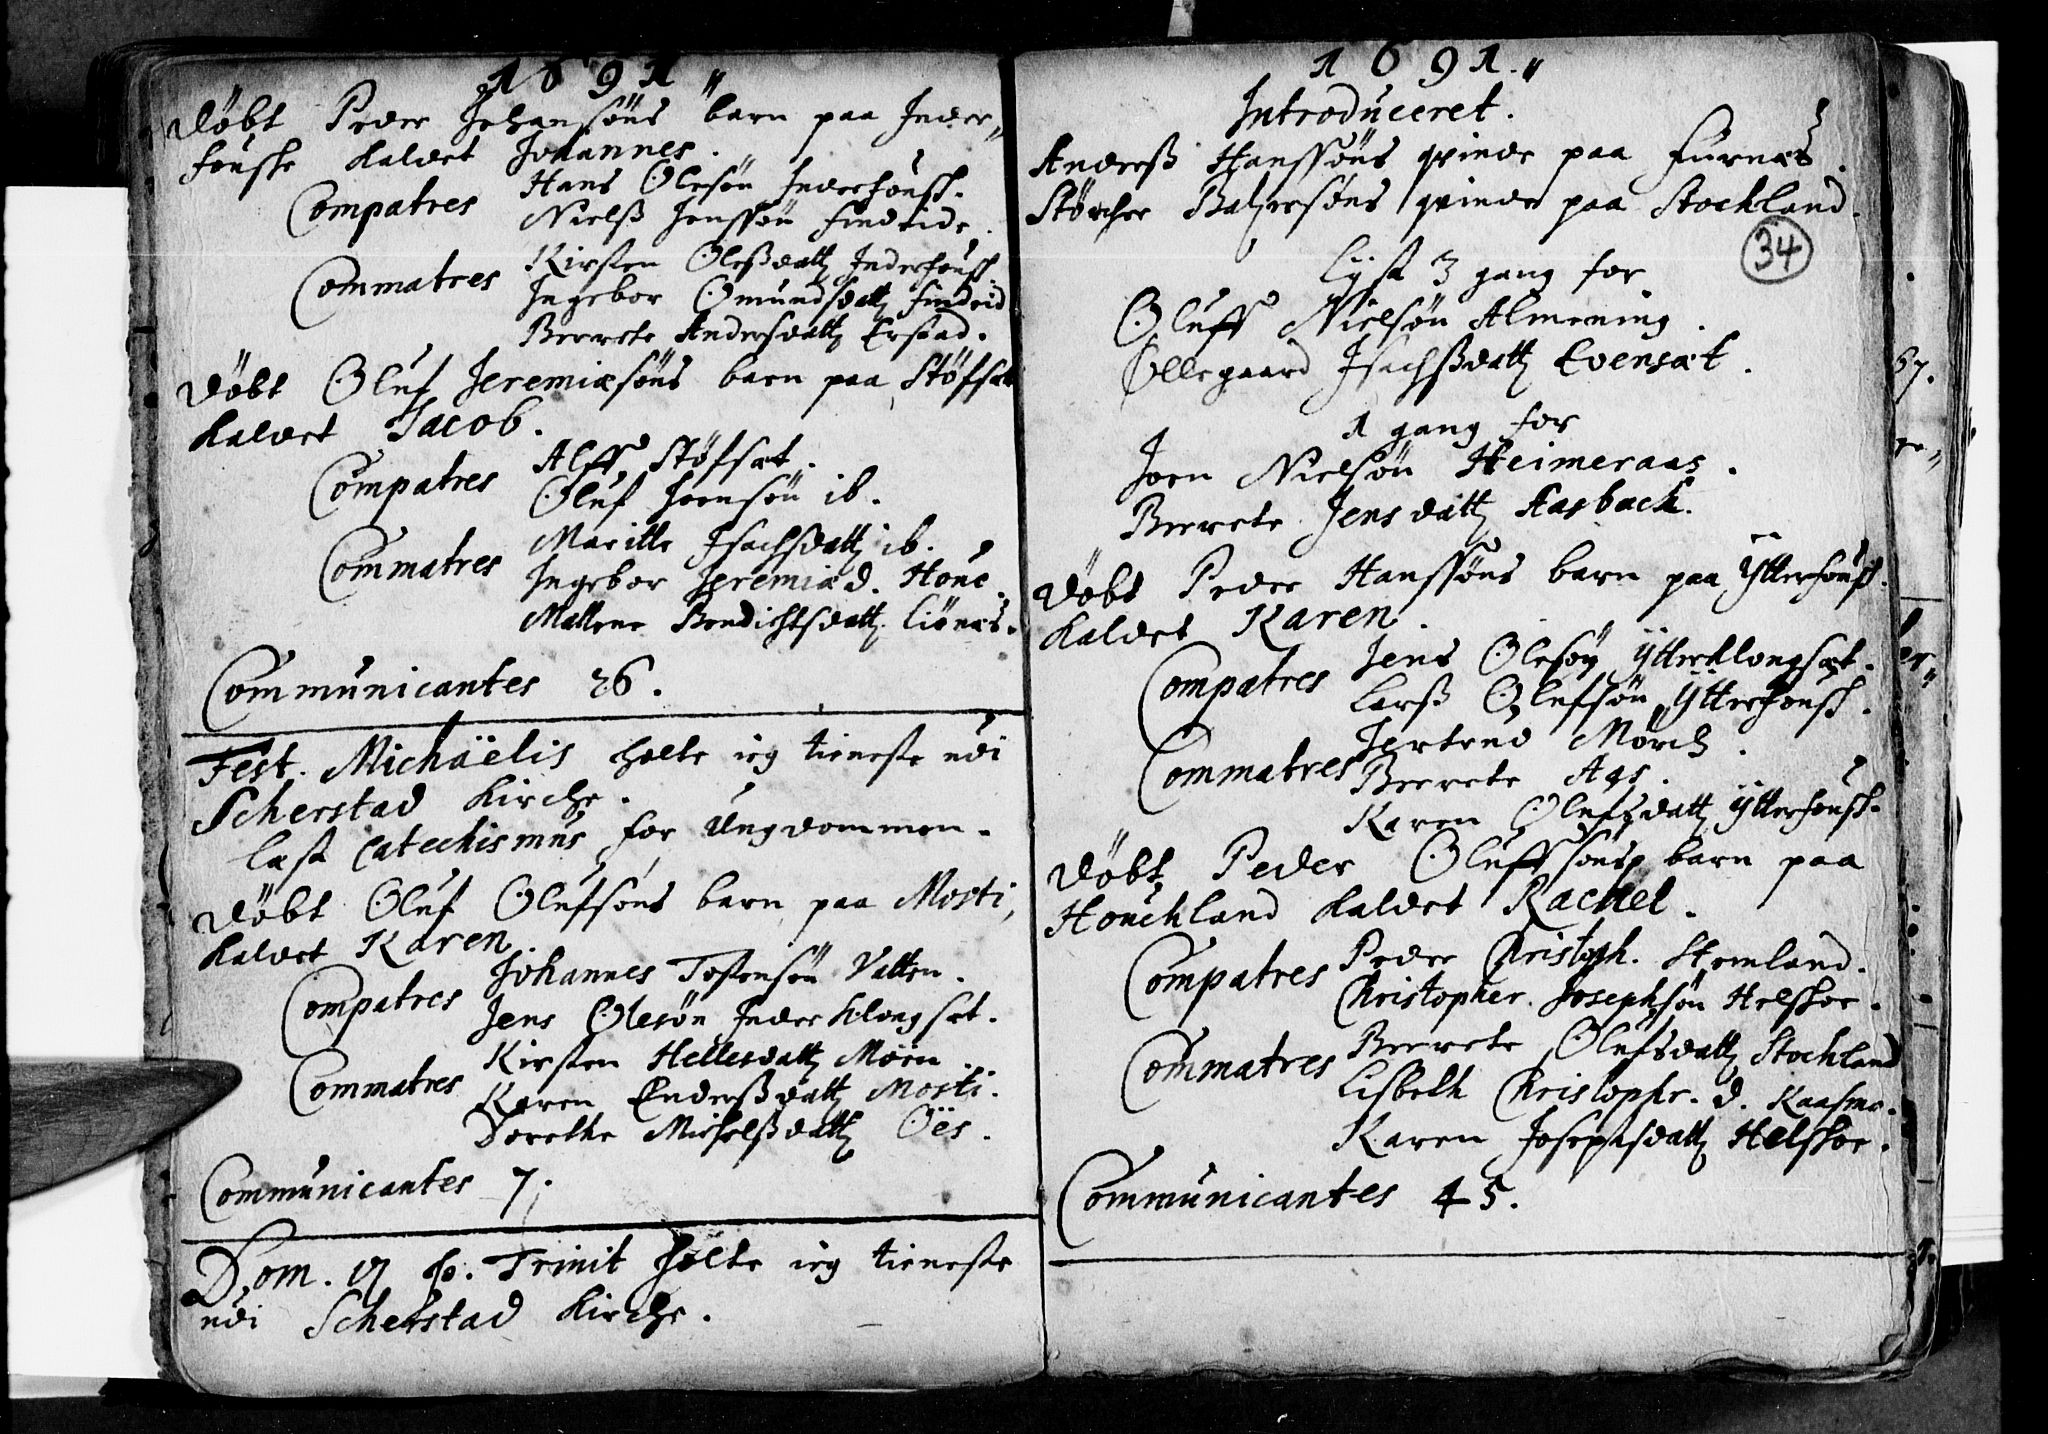 1691 "
Døbt Peder Johansøns barn paa Inder-
houske kaldet Johannes.
Compatres Hans Olesøn Inderhousk.
Nielß Jenssøn Findeide.
Commatres Kirsten Oleßdatt Inderhousk
Ingebor Omundsdatt Findeid
Beerete Andersdatt Erstad.
Døbt Oluf Jeremiæsøns barn paa Støfset
kaldet Jacob.
Compatres Alff Støfsæt.
Oluf Joensøn ib.
Commatres Maritte Isachsdatt ib.
Ingebor Jeremiæd. Houc.
Mallene Bendichtsdatt. Liønæs.
Communicantes 26.
Fest. Michäelis holte ieg tieneste udi
Scherstad Kirche.
læst Catechismus for Ungdommen.
Døbt Oluf Olufsøns barn paa Mosti,
kaldet Karen.
Compatres Johannes Tostensøn Vatten.
Jens Olesøn Inder Klongsæt.
Commatres Kirsten Hellesdatt Moen.
Karen Enderßdatt Mosti.
Dorethe Michelßdatt Öes.
Communicantes 7.
Dom. 17 p. Trinit holte ieg tieneste
udi Scherstad Kirche.
1691. "
Introduceret.
Anderß Hanssøns qvinde paa Furnæs.
Størcher Baltzersøns qvinde paa Stochland.
34
Lyst 3 gang for
Oluff Nielsøn Almening.
Ollegaard Isachßdatt Evensæt.
1 gang for
Joen Nielsøn Heimeraas.
Beerete Jensdatt Aasback.
Døbt Peder Hanssøns barn paa Ytterhousk.
kaldet Karen.
Compatres Jens Olesøn Ytterklongsæt.
Larß Olufsøn Ytterhousk.
Commatres Jertrud Mörch.
Beerete Aas.
Karen Olufsdatt Ytterhousk.
Døbt Peder Oluffsøns barn paa
Houchland kaldet Rachel.
Compatres Peder Christoph. Stemland.
Christopher Josephsøn Helskor.
Commatres Beerete Olufsdatt Stochland
Lisbeth Christophr. d. Kaasmo.
Karen Josephsdatt Helskor.
Communicantes 45.